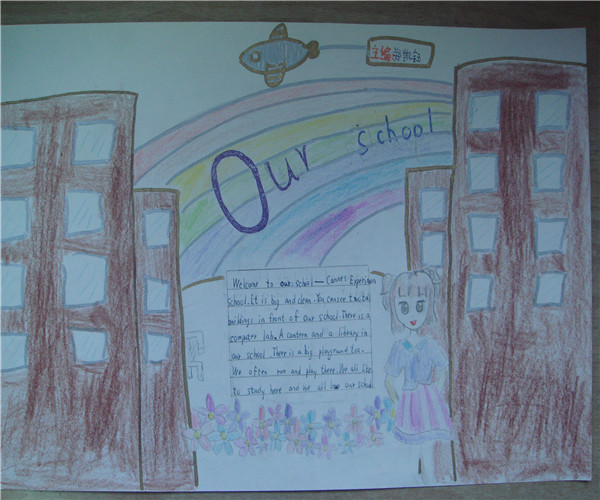 主编
Our school
Welcome to our school — Experi
school. It is big and clean. You can see
buildings in front of our school. There is a
computer lab. A canteen and a library in
our school. There is a big playground too.
We often run and play there. We all like
to study here and we all our school